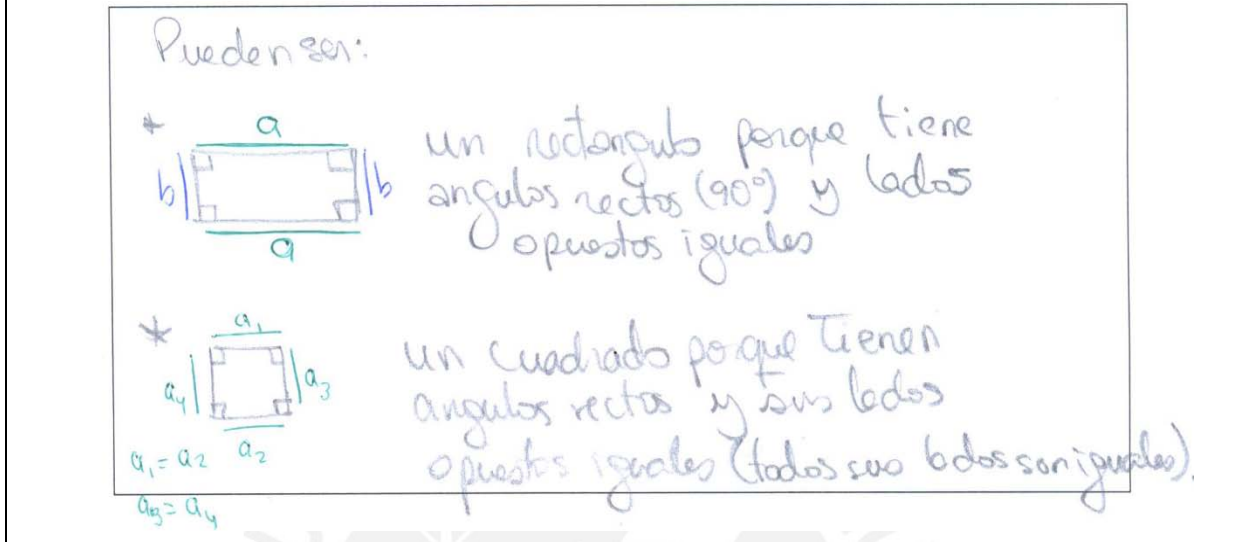 Pueden ser:
* a
un rectangulo porque tiene
b b
angulos rectos (90°) y lados
opuestos iguales
a
* a₁
un cuadrado porque tienen
a₄ a₃
angulos rectos y sus lados
a₁ = a₂ a₂
opuestos iguales (todos sus lados son iguales).
a₃ = a₄